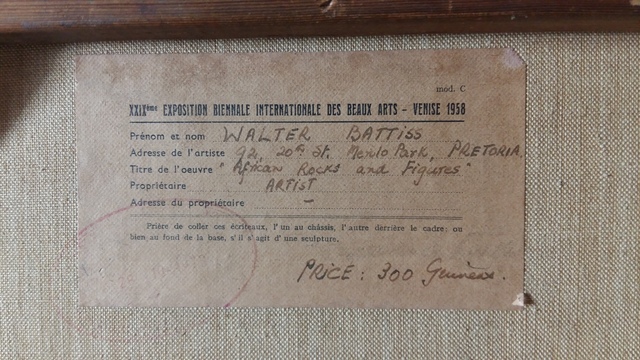 mod. C
XXIXème EXPOSITION BIENNALE INTERNATIONALE DES BEAUX ARTS - VENISE 1958
Prénom et nom WALTER BATTISS
Adresse de l'artiste 92, 20th St. Menlo Park, PRETORIA.
Titre de l'oeuvre "African Rocks and Figures"
Propriétaire ARTIST
Adresse du propriétaire -
Prière de coller ces écriteaux, l'un au châssis, l'autre derrière le cadre; ou
bien au fond de la base, s'il s'agit d'une sculpture.
PRICE: 300 Guineas.